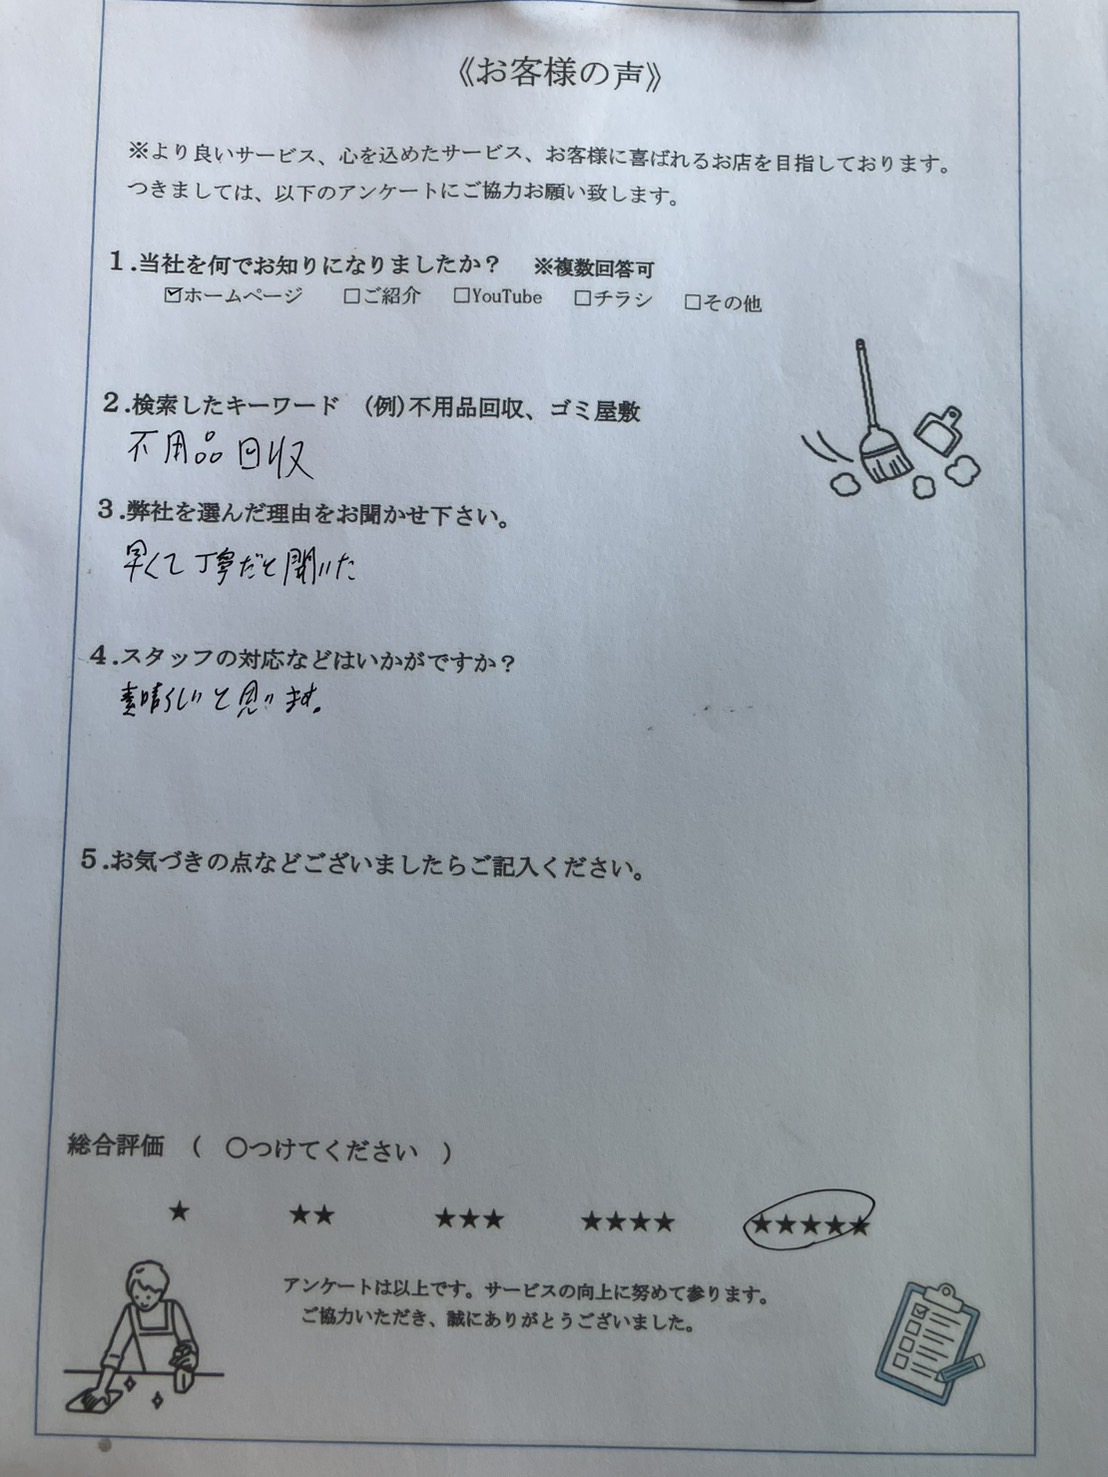 《お客様の声》
※より良いサービス、心を込めたサービス、お客様に喜ばれるお店を目指しております。
つきましては、以下のアンケートにご協力お願い致します。
１.当社を何でお知りになりましたか？　※複数回答可
☑ホームページ　□ご紹介　□YouTube　□チラシ　□その他
２.検索したキーワード　(例)不用品回収、ゴミ屋敷
不用品回収
３.弊社を選んだ理由をお聞かせ下さい。
早くて丁寧だと聞いた
４.スタッフの対応などはいかがですか？
素晴らしいと思います。
５.お気づきの点などございましたらご記入ください。
総合評価　(　〇つけてください　)
★　★★　★★★　★★★★　★★★★★
アンケートは以上です。サービスの向上に努めて参ります。
ご協力いただき、誠にありがとうございました。